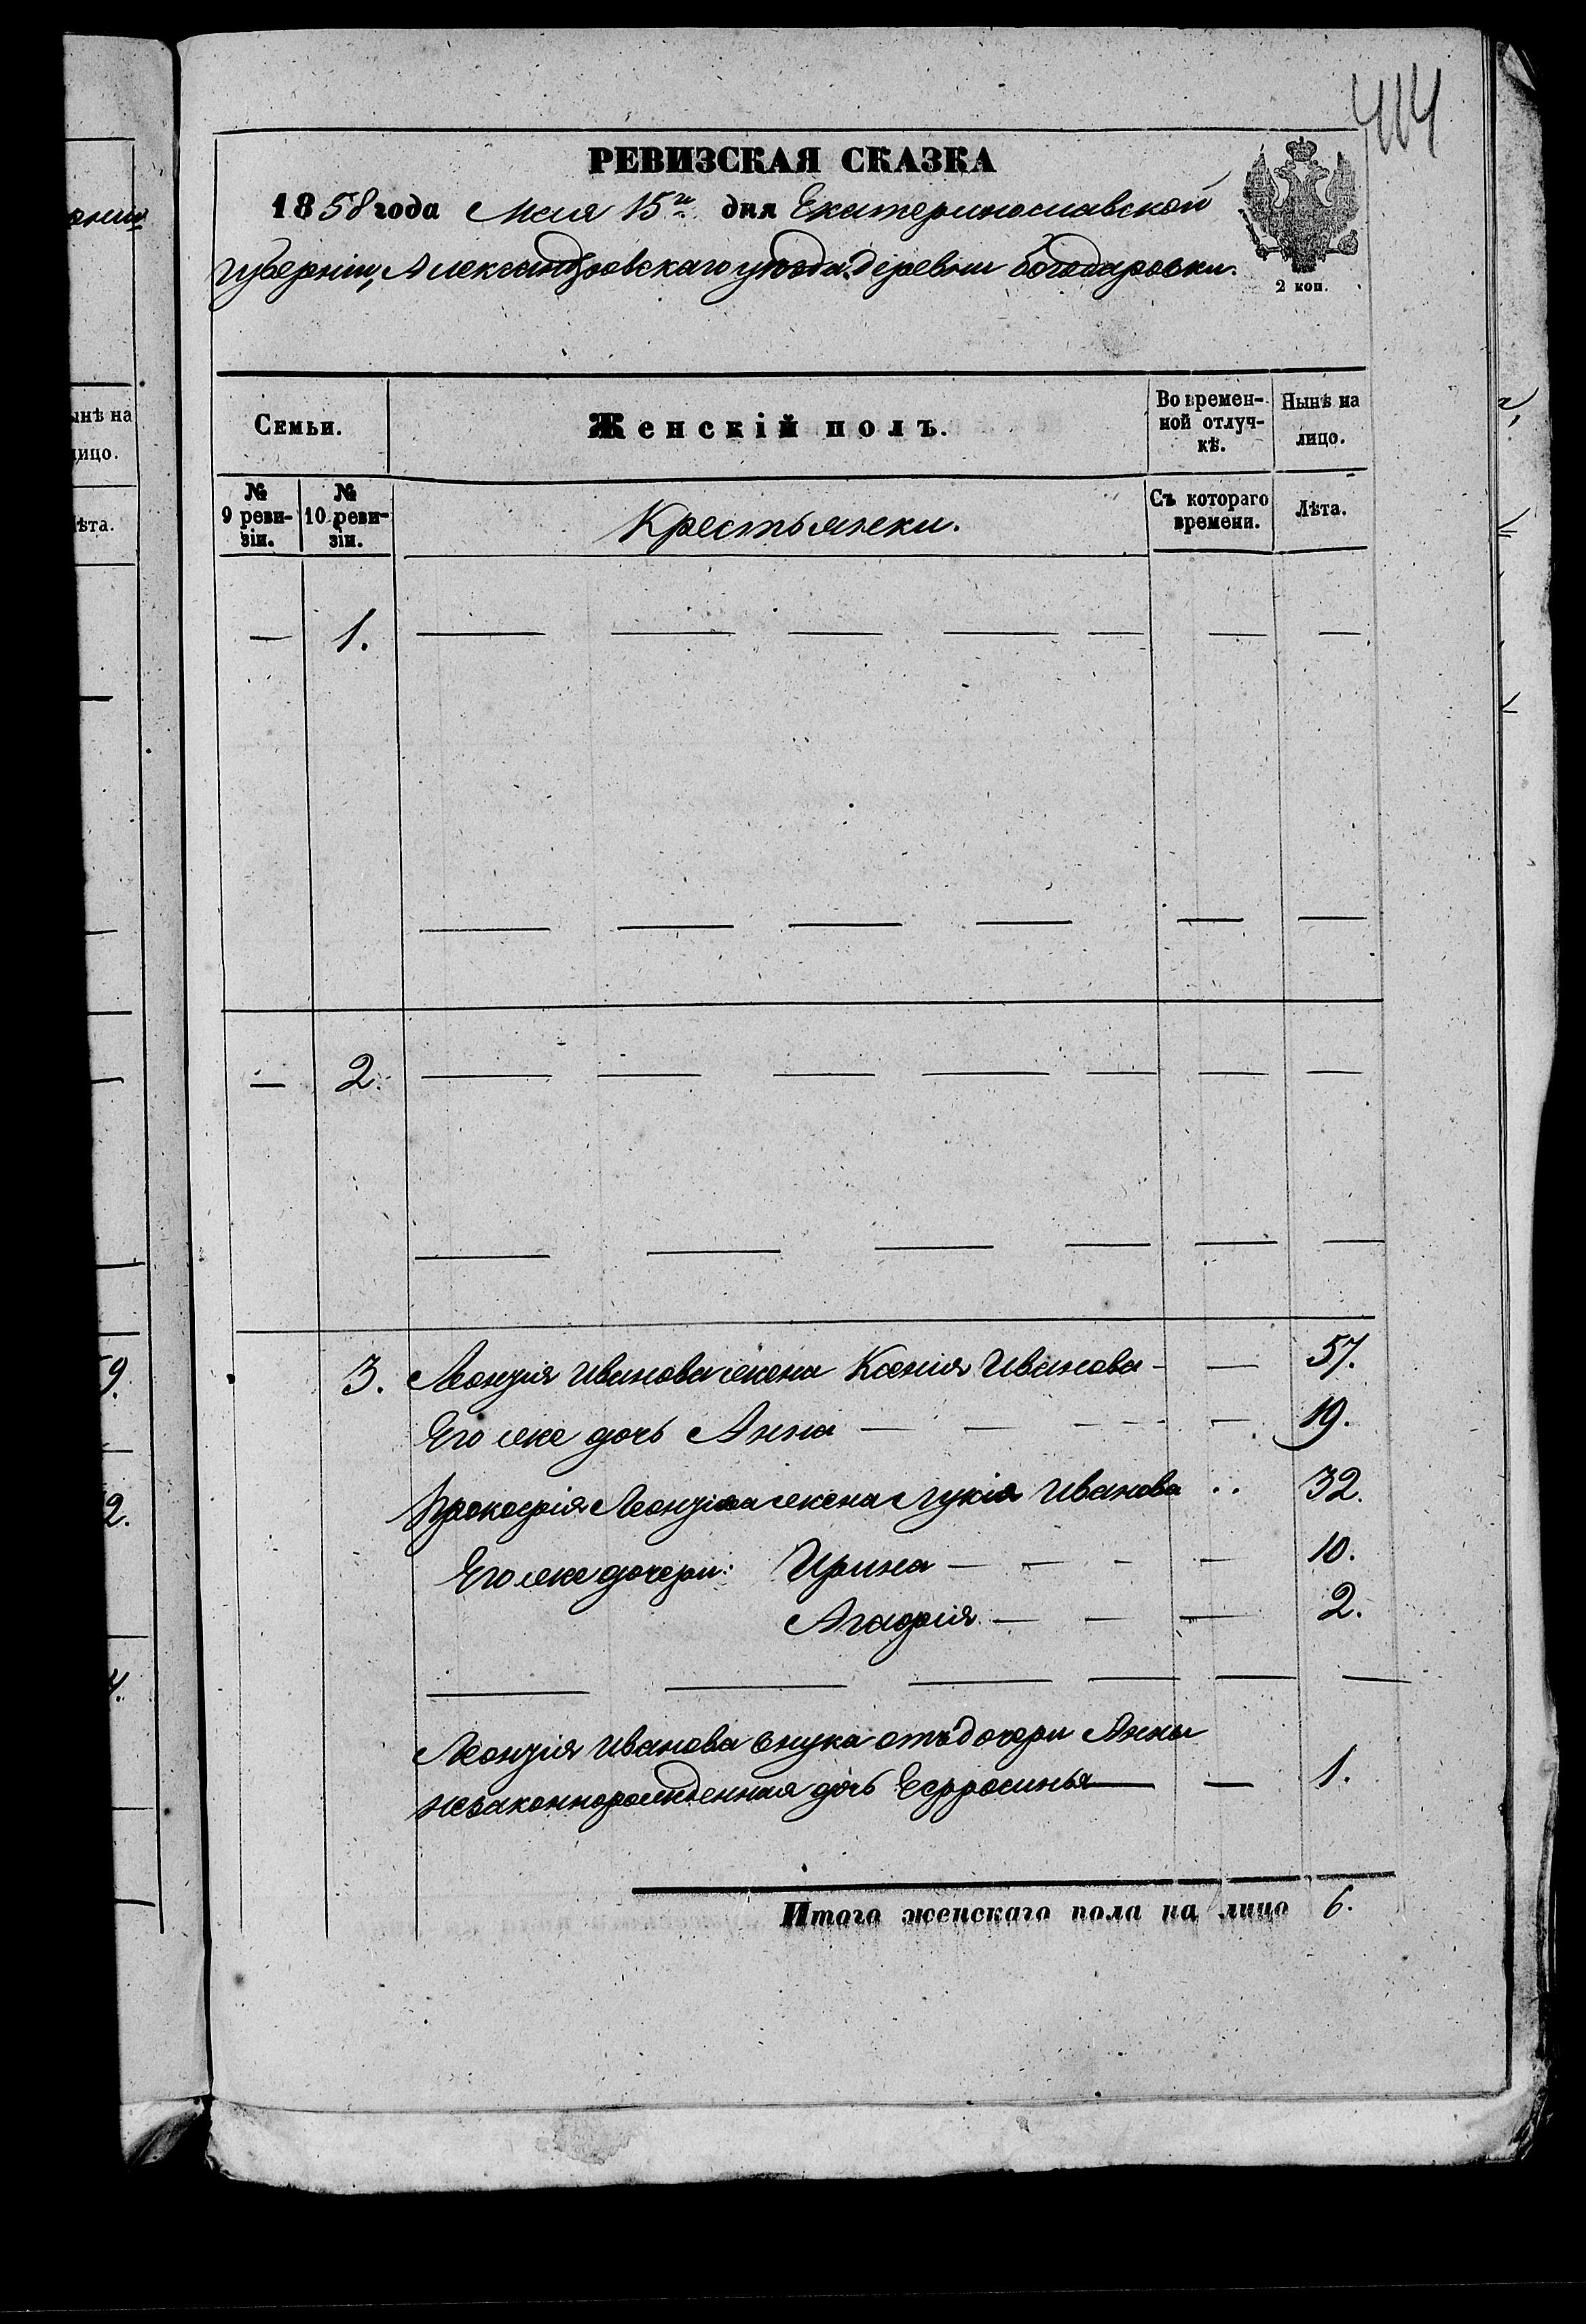 414
РЕВИЗСКАЯ СКАЗКА
1858 года Мая 15го дня Екатеринославской
губерніи, Александровскаго уѣзда, деревни Богодаровки.
2 коп.
Семьи.
Женскій полъ.
Во времен-
ной отлуч-
кѣ.
Нынѣ на
лицо.
№
9 реви-
зіи.
№
10 реви-
зіи.
Крестьянки.
Съ котораго
времени.
Лѣта.
— 1. — — — — — — —
— — — — — —
— 2. — — — — — — —
— — — — — —
3. Леонтія Иванова жена Ксенія Иванова - — 57.
Его же дочь Анна — — - - - — 19.
Прокофія Леонтіева жена Лукія Иванова .. 32.
Его же дочери: Ирина — — - — 10.
Агафія — — — 2.
— — — — — —
Леонтія Иванова внука отъ дочери Анны
незаконнорожденная дочь Ефросинья — — 1.
Итого женскаго пола на лицо 6.